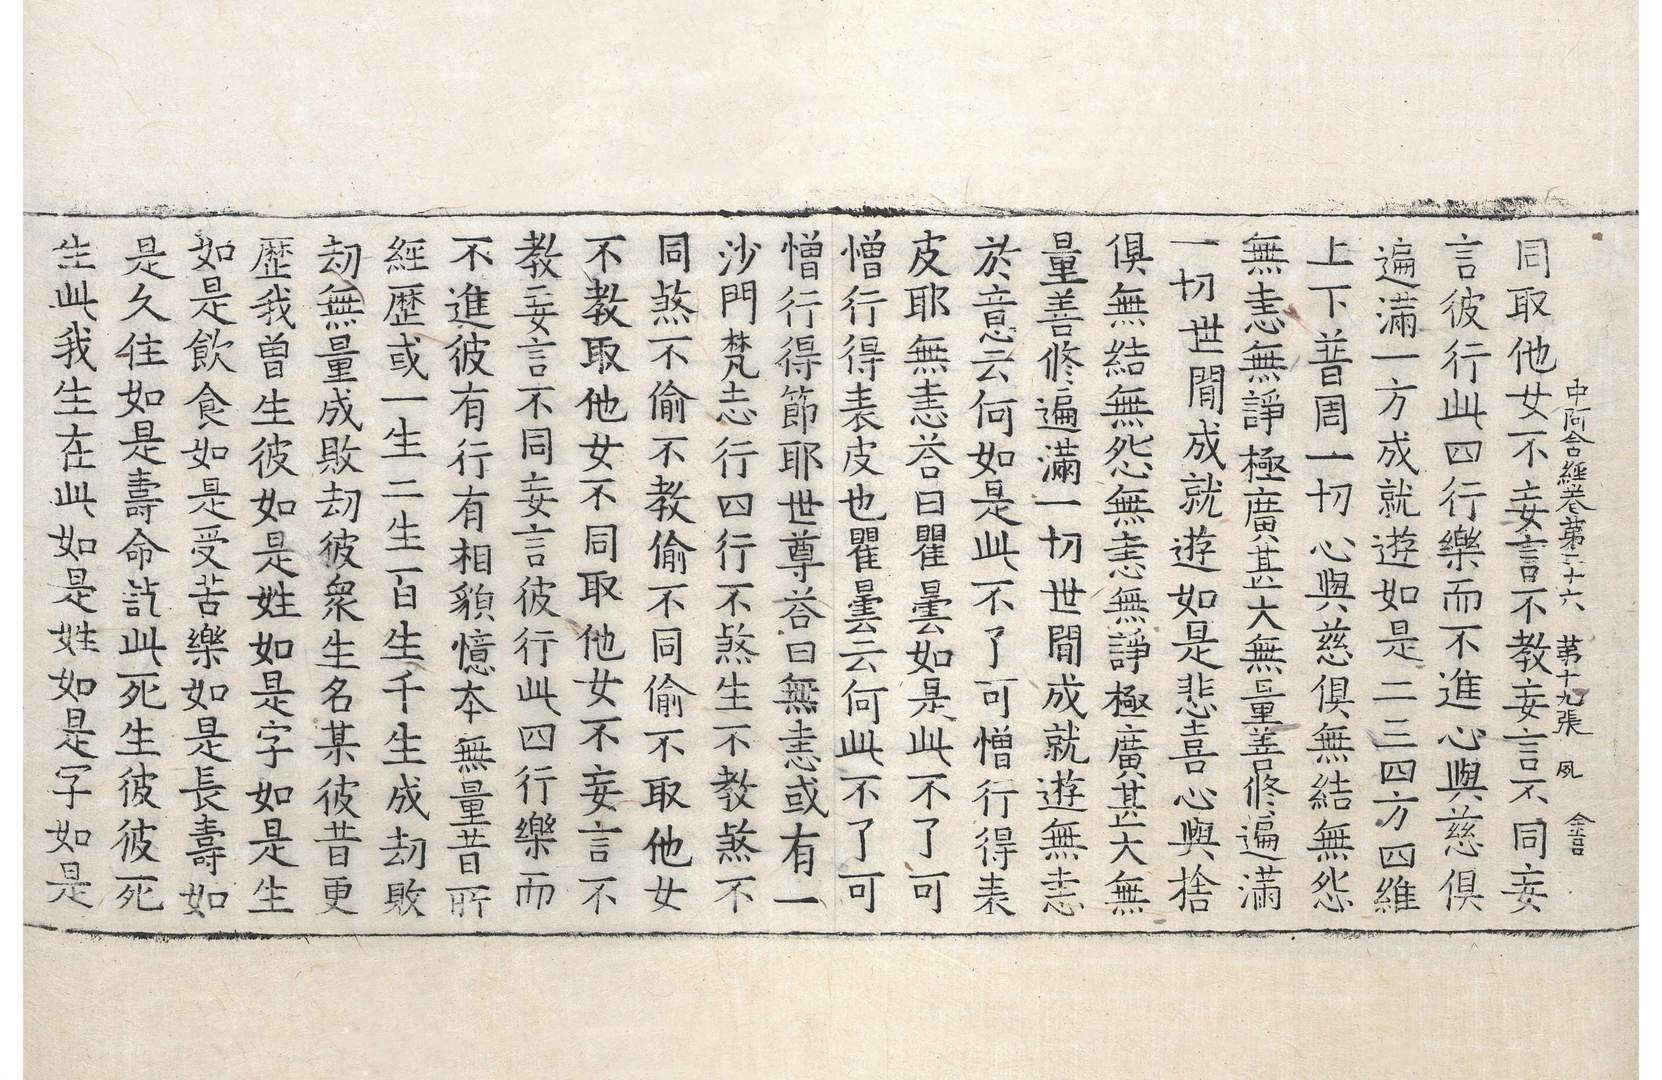 中阿含經卷苐二十六 苐十九張 夙 金言
同取他女不妄言不教妄言不同妄
言彼行此四行樂而不進心與慈俱
遍滿一方成就遊如是二三四方四維
上下普周一切心與慈俱無結無怨
無恚無諍極廣甚大無量善修遍滿
一切世閒成就遊如是悲喜心與捨
俱無結無怨無恚無諍極廣甚大無
量善修遍滿一切世閒成就遊無恚
於意云何如是此不了可憎行得表
皮耶無恚荅曰瞿曇如是此不了可
憎行行得表皮也瞿曇云何此不了可
憎行得節耶世尊荅曰無恚或有一
沙門梵志行四行不煞生不教煞不
同煞不偷不教偷不同偷不取他女
不教取他女不同取他女不妄言不
教妄言不同妄言彼行此四行樂而
不進彼有行有相貌憶本無量昔所
經歷或一生二生百生千生成劫敗
劫無量成敗劫彼衆生名某彼昔更
歷我曾生彼如是姓如是字如是生
如是飲食如是受苦樂如是長壽如
是久住如是壽命訖此死生彼彼死
生此我生在此如是姓如是字如是